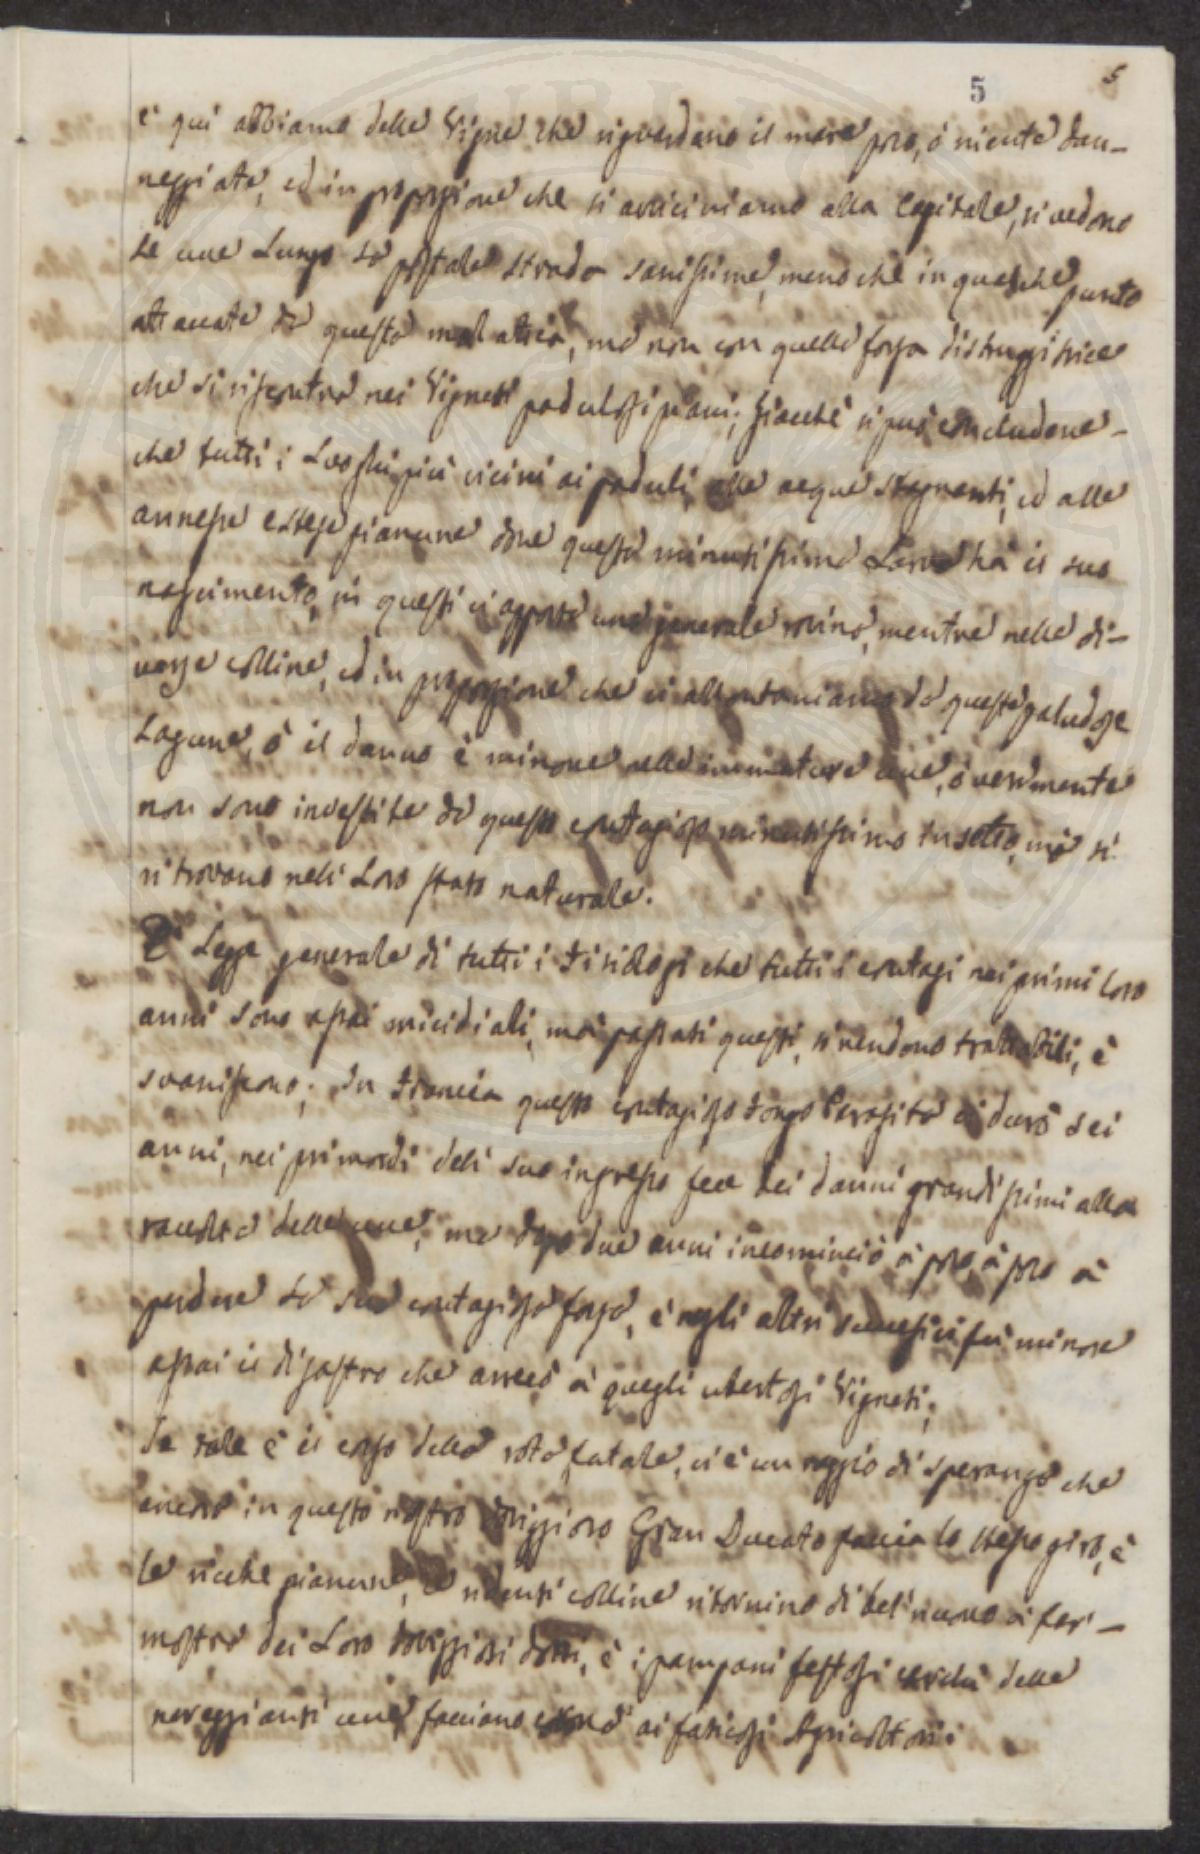 5 5
è qui abbiamo delle Vigne che riguardano il mare poco, ò niente dan-
neggiate, ed in proporzione che si avviciniamo alla Capitale, si vedono
Le uve Lungo La postale strada sanissime, meno che in qualche punto
attaccate da questa malattia, ma non con quella forza distruggitrice
che si riscontra nei Vigneti padulosi piani; Giacchè si può concludere-
che tutti i Luoghi più vicini ai paduli, alle acque stagnanti, ed alle
annesse estese pianure dove questa minutissima Larva ha il suo
nascimento, in questi vi apporta una generale rovina, mentre nelle di-
verse colline, ed in proporzione che ci allontaniamo da queste paludose
Lagune, ò il danno è minore nelle immature uve, ò veramente
non sono investite da questo contagioso minutissimo Insetto, mà si
ritrovano neli Loro stato naturale.
È Legge generale di tutti i Fisiologi che tutti i contagi nei primi Loro
anni sono assai micidiali, mà passati questi, si rendono trattabili, è
svaniscono; In Francia questo contagioso Fongo Parasita vi durò sei
anni, nei primordi deli suo ingresso fece dei danni grandissimi alla
raccolta delle uve, ma dopo due anni incominciò à poco, à poco à
perdere La sua contagiosa forza, è negli altri successivi fù minore
assai il disastro che arrecò à quegli ubertosi Vigneti;
Se tale è il corso della rota fatale, vi è un raggio di speranza che
ancora in questo nostro doviziioso Gran Ducato faccia lo stesso giro, è
le ricche pianure, le ridenti colline ritornino di bel nuovo à far-
mostra dei Loro doviziosi doni, è i pampani festosi carchi delle
nereggianti uve, facciano ai faticosi Agricoltori